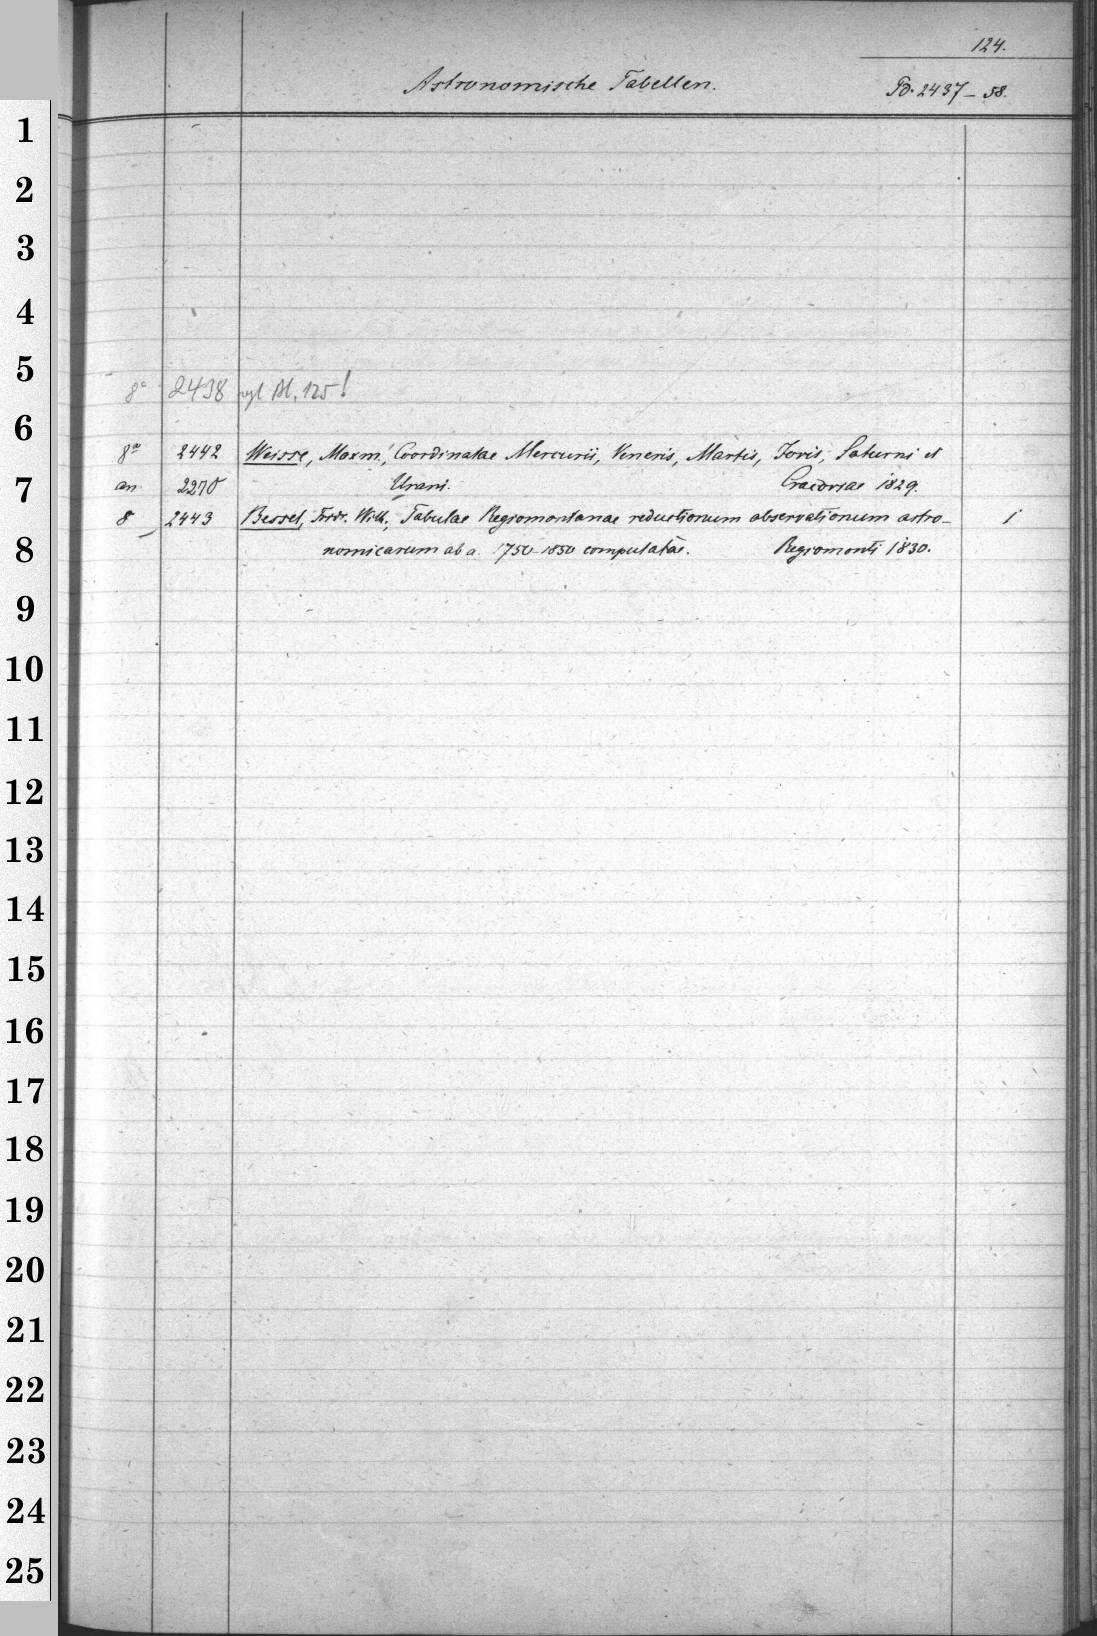 124.
Astronomische Tabellen. Pd. 2437-58.
1
2
3
4
5
8° 2438 vgl Bl. 125!
6
8° 2442 Weisse, Maxm., Coordinatae Mercurii, Veneris, Martis, Jovis, Saturni et
7
an 2270 Urani. Cracoviae 1829.
8 2443 Bessel, Frdr. Wilh., Tabulae Regiomontanae reductionum observationum astro- 1
8
nomicarum ab a. 1750-1850 computatae. Regiomonti 1830.
9
10
11
12
13
14
15
16
17
18
19
20
21
22
23
24
25